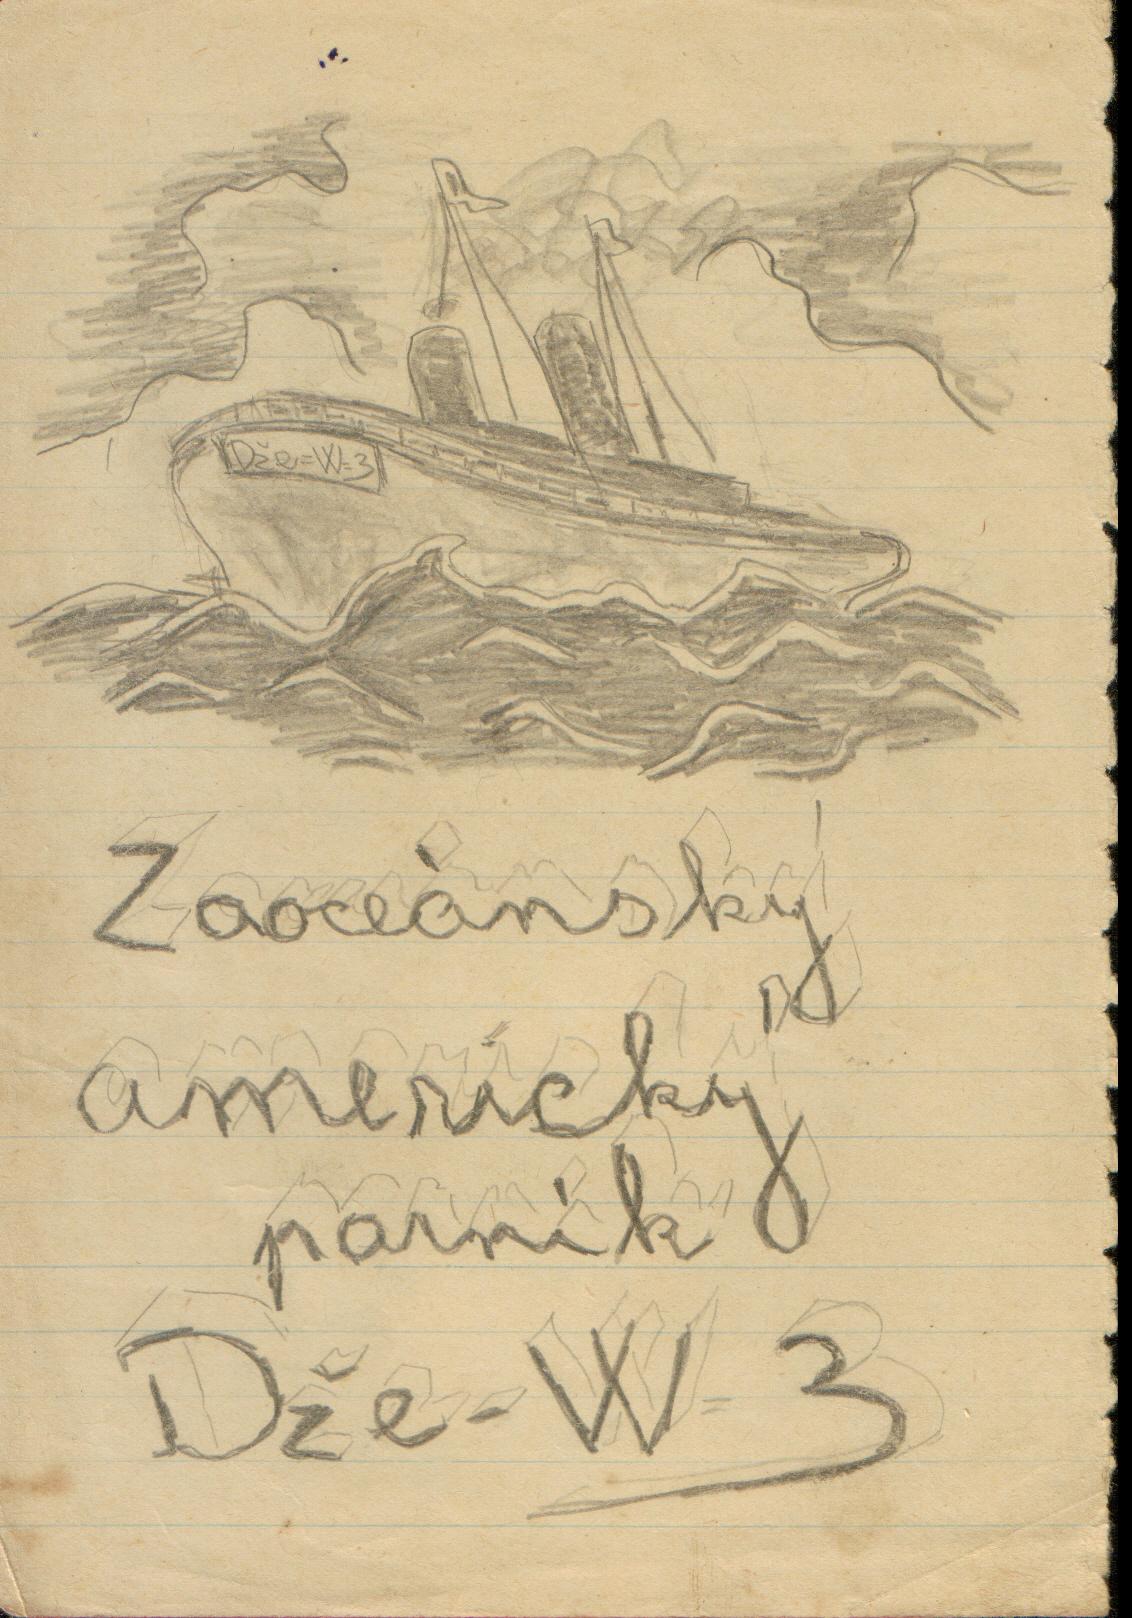 Dže=W=3
Zaoceánský
americký
parník
Dže-W=3